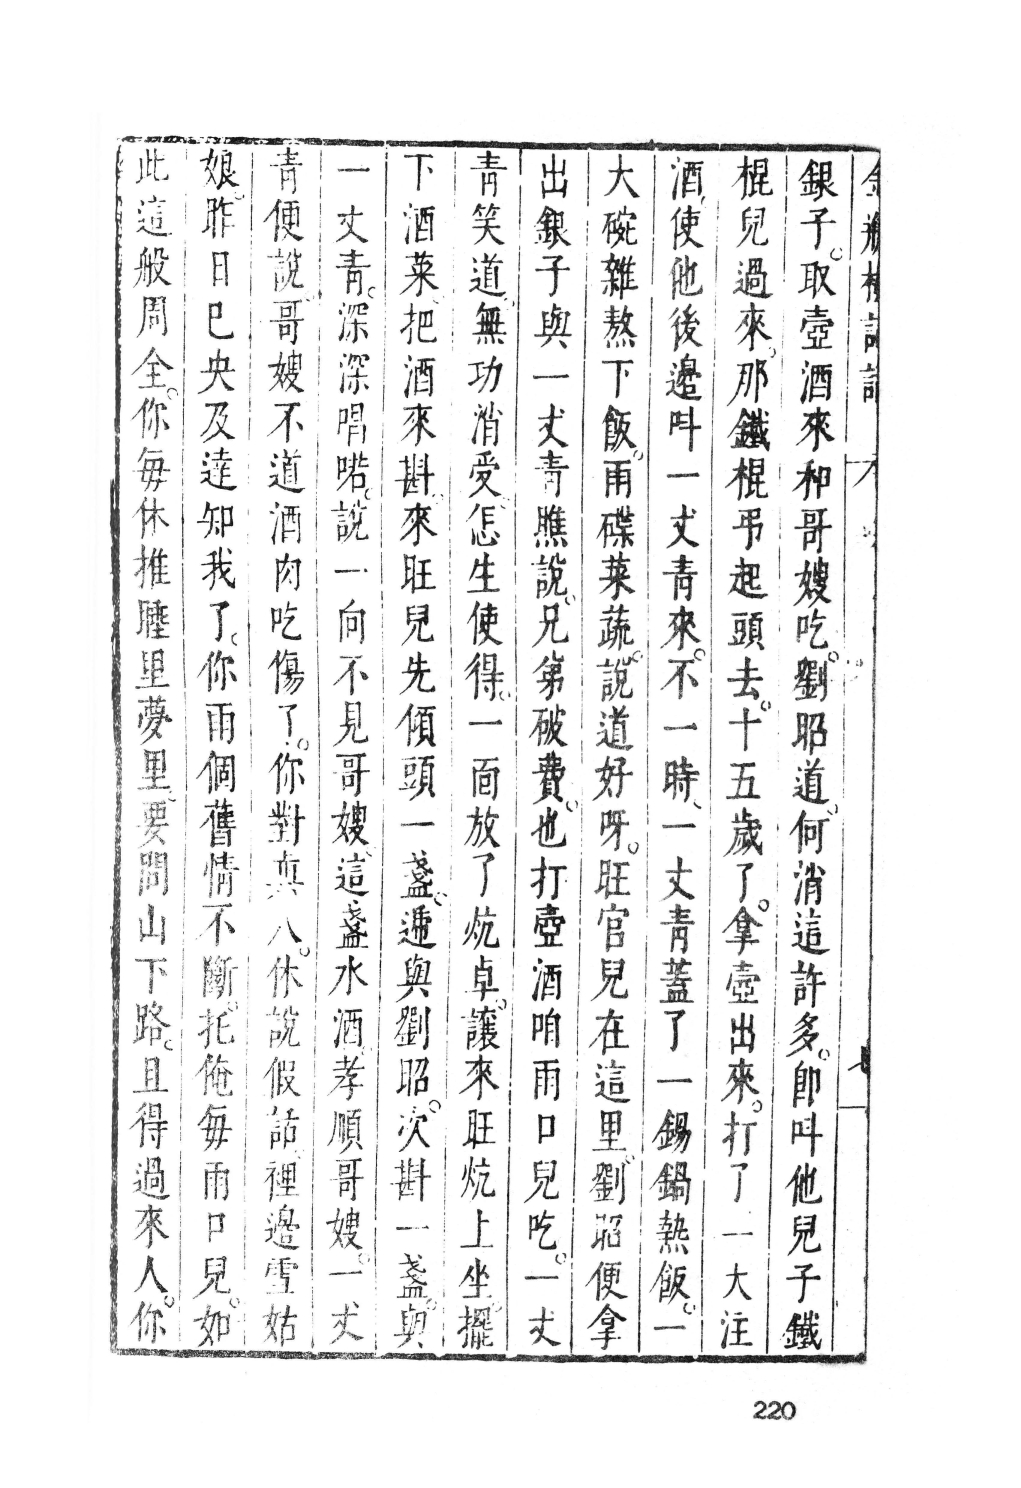 金瓶梅詞話
銀子。取壺酒來和哥嫂吃。劉昭道、何消這許多。即叫他兒子鐵
棍兒過來、那鐵棍弔起頭去。十五歲了。拿壺出來。打了一大注
酒、使他後邊叫一丈青來。不一時、一丈青蓋了一錫鍋熱飯。一
大碗雜熬下飯。兩碟菜蔬。說道好呀。旺官兒在這里。劉昭便拿
出銀子與一丈青瞧說。兄弟破費。也打壺酒咱兩口兒吃。一丈
青笑道、無功消受、怎生使得。一面放了炕卓。讓來旺炕上坐。擺
下酒菜、把酒來斟。來旺兒先傾頭一盞。遞與劉昭。次斟一盞。與
一丈青。深深唱喏。說一向不見哥嫂、這盞水酒、孝順哥嫂。一丈
青便說、哥嫂不道酒肉吃傷了。你對真人。休說假話、裡邊雪姑
娘。昨日已央及達知我了。你兩個舊情不斷。托俺每兩口兒。如
此這般周全。你每休推睡里夢里。要問山下路。且得過來人。你
220